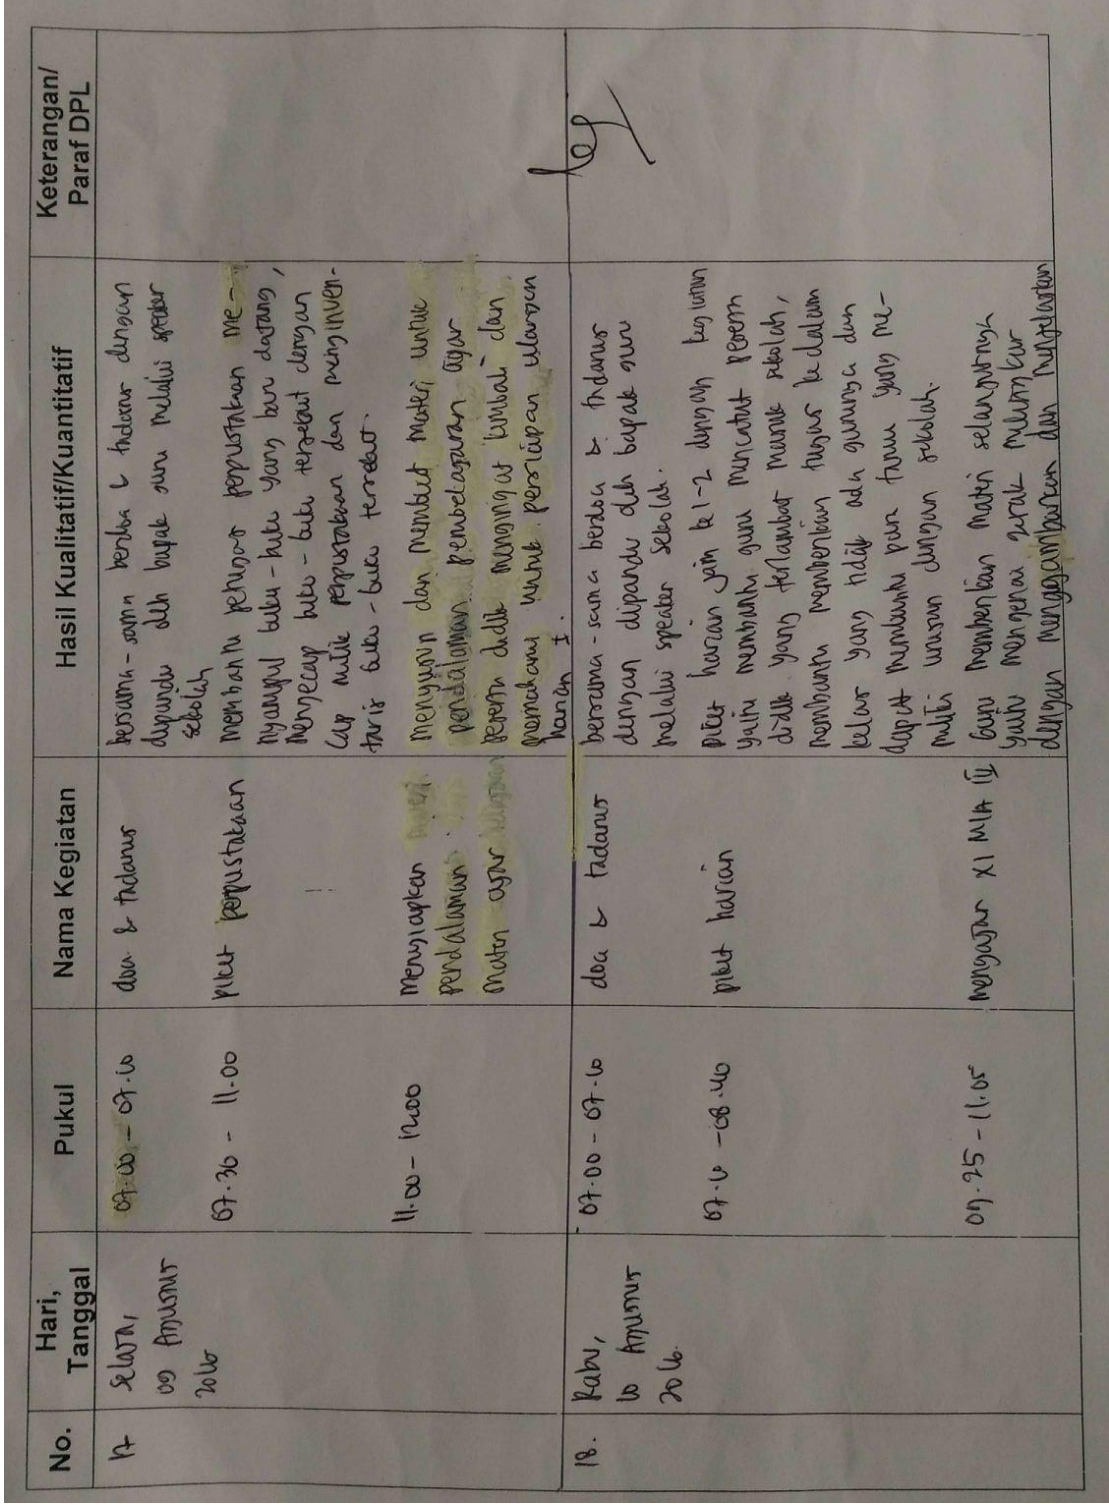 No.
Hari,
Tanggal
Pukul
Nama Kegiatan
Hasil Kualitatif/Kuantitatif
Keterangan/
Paraf DPL
17
Selasa,
09 Agustus
2016
07.00 - 07.10
doa & tadarus
bersama-sama berdoa & tadarus dengan
dipandu oleh bapak guru melalui speaker
sekolah
07.30 - 11.00
piket perpustakaan
membantu petugas perpustakaan me-
nyampul buku-buku yang baru datang,
mengecap buku-buku tersebut dengan
cap milik perpustakaan dan menginven-
taris buku-buku tersebut.
11.00 - 12.00
menyiapkan
pendalaman
materi ajar
menyusun dan membuat materi untuk
pendalaman pembelajaran agar
peserta didik mengingat kembali dan
memahami untuk persiapan ulangan
harian I.
18.
Rabu,
10 Agustus
2016.
07.00 - 07.10
doa & tadarus
bersama-sama berdoa & tadarus
dengan dipandu oleh bapak guru
melalui speaker sekolah.
07.10 - 08.40
piket harian
piket harian jam ke 1-2 dengan kegiatan
yaitu membantu guru mencatat peserta
didik yang terlambat masuk sekolah,
membantu memberikan tugas ke dalam
kelas yang tidak ada gurunya dan
dapat membantu para tamu yang me-
miliki urusan dengan sekolah.
09.25 - 11.05
mengajar XI MIA III
Guru memberikan materi selanjutnya
yaitu mengenai gerak melingkar
dengan menggambarkan dan menjelaskan